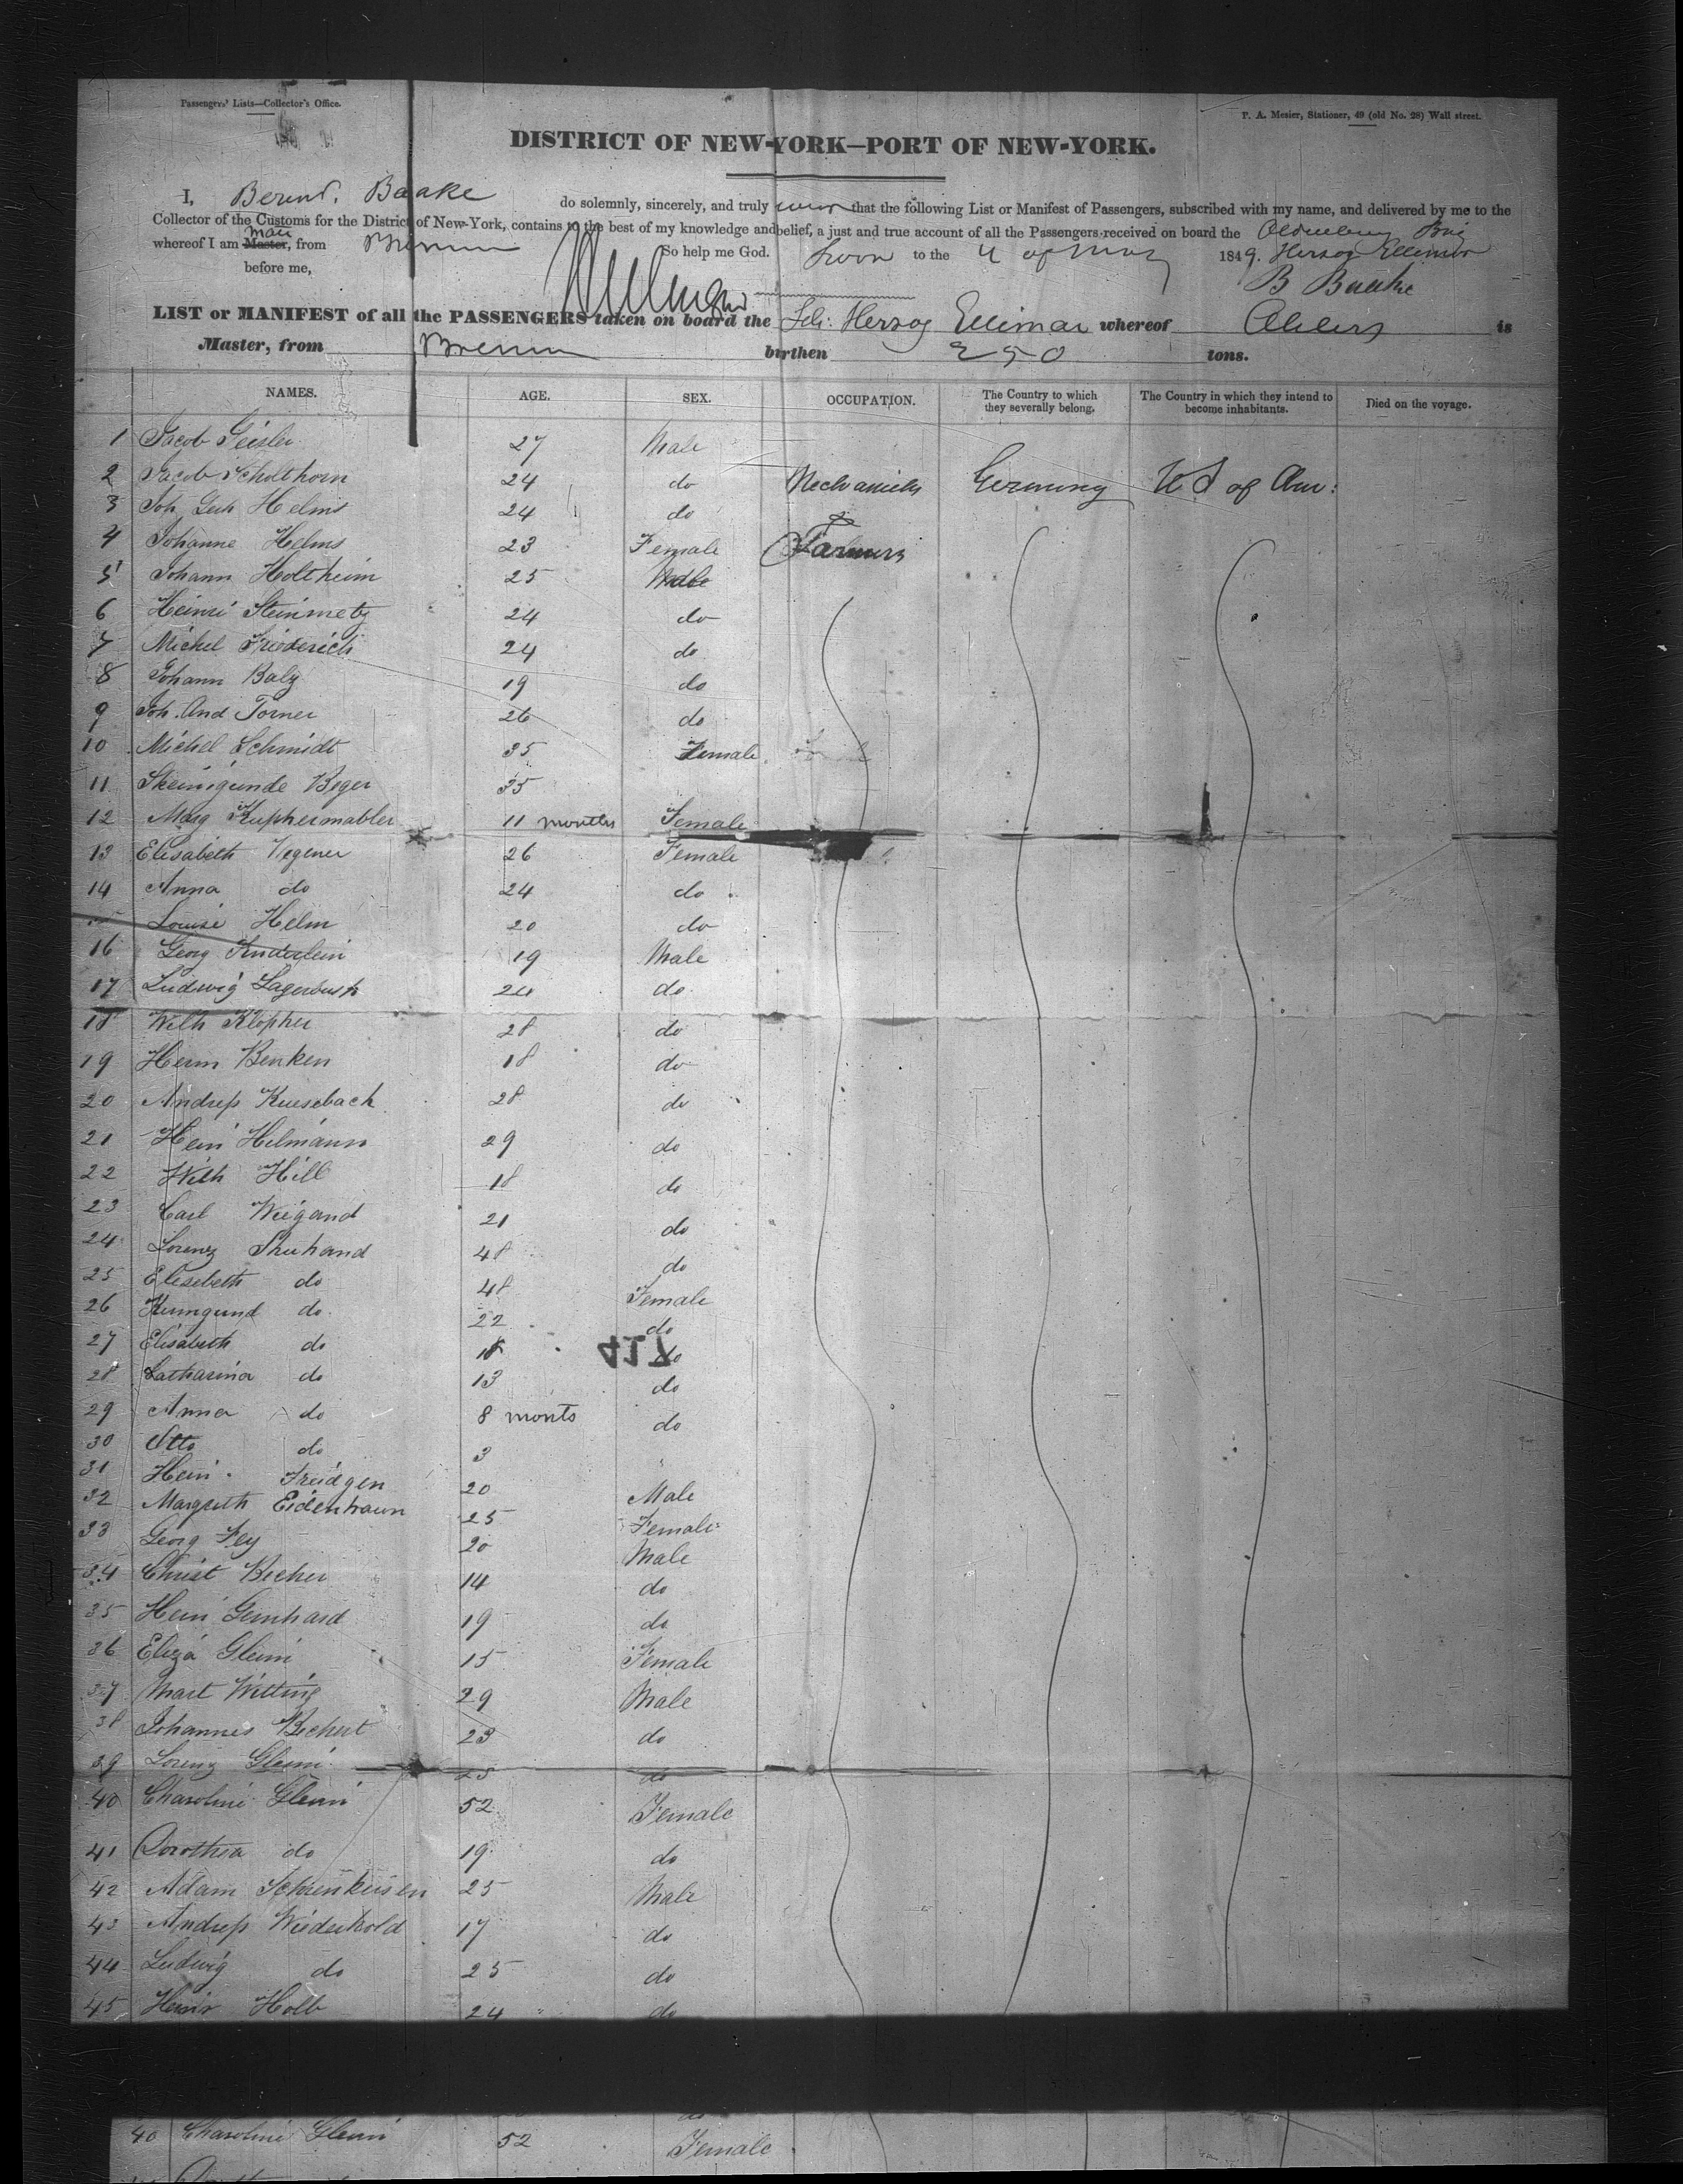 Passengers' Lists—Collector's Office.
P. A. Mesier, Stationer, 49 (old No. 28) Wall street.
DISTRICT OF NEW-YORK—PORT OF NEW-YORK.
I, Bernd. Baake do solemnly, sincerely, and truly that the following List or Manifest of Passengers, subscribed with my name, and delivered by me to the
Collector of the Customs for the District of New-York, contains to the best of my knowledge and belief, a just and true account of all the Passengers received on board the Oldenburg Brig
whereof I am Master, mate from Bremen So help me God. Sworn to the 4 of May 1849. Herzog Ellimar
before me,
B Baake
LIST or MANIFEST of all the PASSENGERS taken on board the Herzog Ellimar whereof Ahlers is
Master, from Bremen birthen 250 tons.
NAMES. AGE. SEX. OCCUPATION. The Country to which they severally belong. The Country in which they intend to become inhabitants. Died on the voyage.
1 Jacob Geisler 27 Male
2 Jacob Scholthorn 24 do Mechanicks Germany U S of Am:
3 Joh Geh Helms 24 do &
4 Johanne Helms 23 Female Farmers
5 Johann Holtheim 25 Male
6 Heinri Steinmetz 24 do
7 Michel Friederich 24 do
8 Johann Balz 19 do
9 Joh. And Torner 26 do
10 Michel Schmidt 35 Female
11 Beger 35
12 Marg Kuphermabler 11 months Female
13 Elisabeth Wegener 26 Female
14 Anna do 24 do
15 Louise Helm 20 do
16 Georg Kuderlein 19 Male
17 Ludwig Lagerbush 24 do
18 Wilh Klopher 28 do
19 Herm Benken 18 do
20 Andreß Kuesebach 28 do
21 Hein Hilmann 29 do
22 Wilh Hill 18 do
23 Carl Weigand 21 do
24 Lorenz Shuhand 48 do
25 Elisebeth do 48 Female
26 Kunngund do 22 do
27 Elisabeth do 18 do
417
28 Catharina do 13 do
29 Anna do 8 monts do
30 Otto do 3
31 Hein. Freidgen 20 Male
32 Margreth Eidenhawn 25 Female
33 Georg Fey 20 Male
34 Christ Becher 14 do
35 Hein Gernhard 19 do
36 Eliza Gleim 15 Female
37 Mart Witting 29 Male
38 Johannes Bechert 23 do
39 Lorenz Gleim 25 do
40 Charolini Gleim 52 Female
41 Dorothea do 19 do
42 Adam Schrenkeisen 25 Male
43 Andreß Wiederhold 17 do
44 Ludwig do 25 do
45 Heinr Holb 24 do
40 Charolini Gleim 52 Female